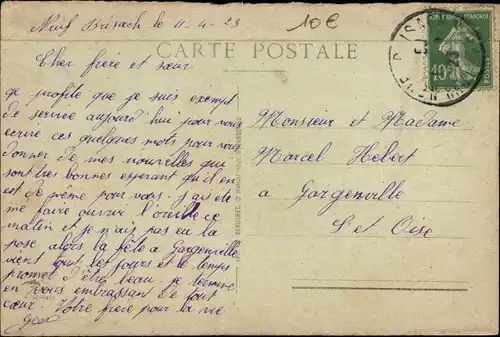 Neuf Brisach le 11-4-23
10€
CARTE POSTALE
Cher frère et sœur
je profite que je suis exempt
de service aujourd'hui pour vous
écrire ces quelques mots pour vous
donner de mes nouvelles qui
sont très bonnes esperant qu'il en
est de même pour vous. j'ai été
me faire ouvrir l'oreille ce
matin et je n'ais pas eu la
pose alors la fête a Gargenville
vient tout les jours et le temps
promet d'être beau. je termine
en vous embrassant de tout
cœur. Votre frère pour la vie
Geo
Monsieur et Madame
Marcel Hebert
a Gargenville
S et Oise